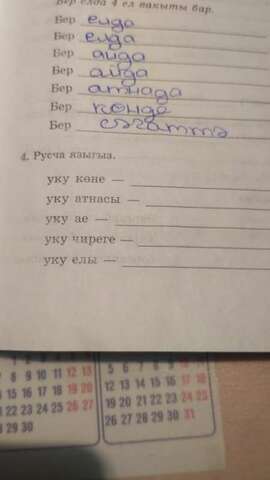 Бер елда 4 ел вакыты бар.
Бер елда
Бер елда
Бер айда
Бер айда
Бер атнада
Бер көндә
Бер сәгаттә
4. Русча языгыз.
уку көне —
уку атнасы —
уку ае —
уку чиреге —
уку елы —
5 6 7 8 9
8 9 10 11 12 13
12 13 14 15 16 17 18
15 16 17 18 19 20
19 20 21 22 23 24 25
22 23 24 25 26 27
26 27 28 29 30 31
29 30